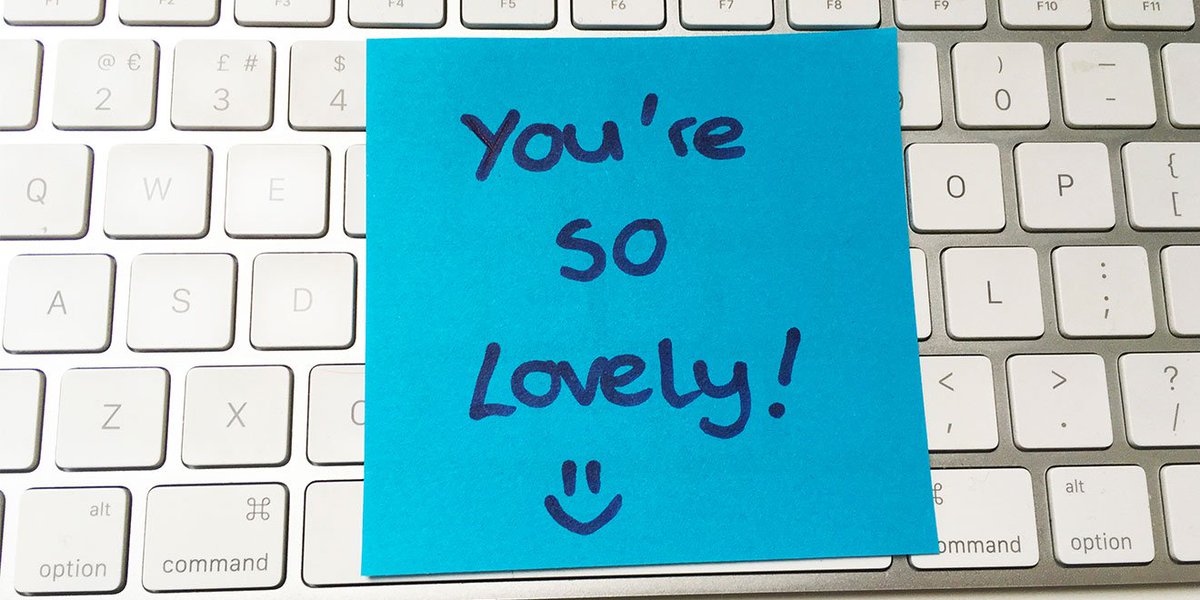 F1 F2 F3 F4 F5 F6 F7 F8 F9 F10 F11
@ € £ # $ ) — 
2 3 4 0 -
You're
so
Lovely!
Q W E O P { [
,
A S D L : ;
Z X < , > . ? /
alt ⌘ ⌘ alt
option command command option